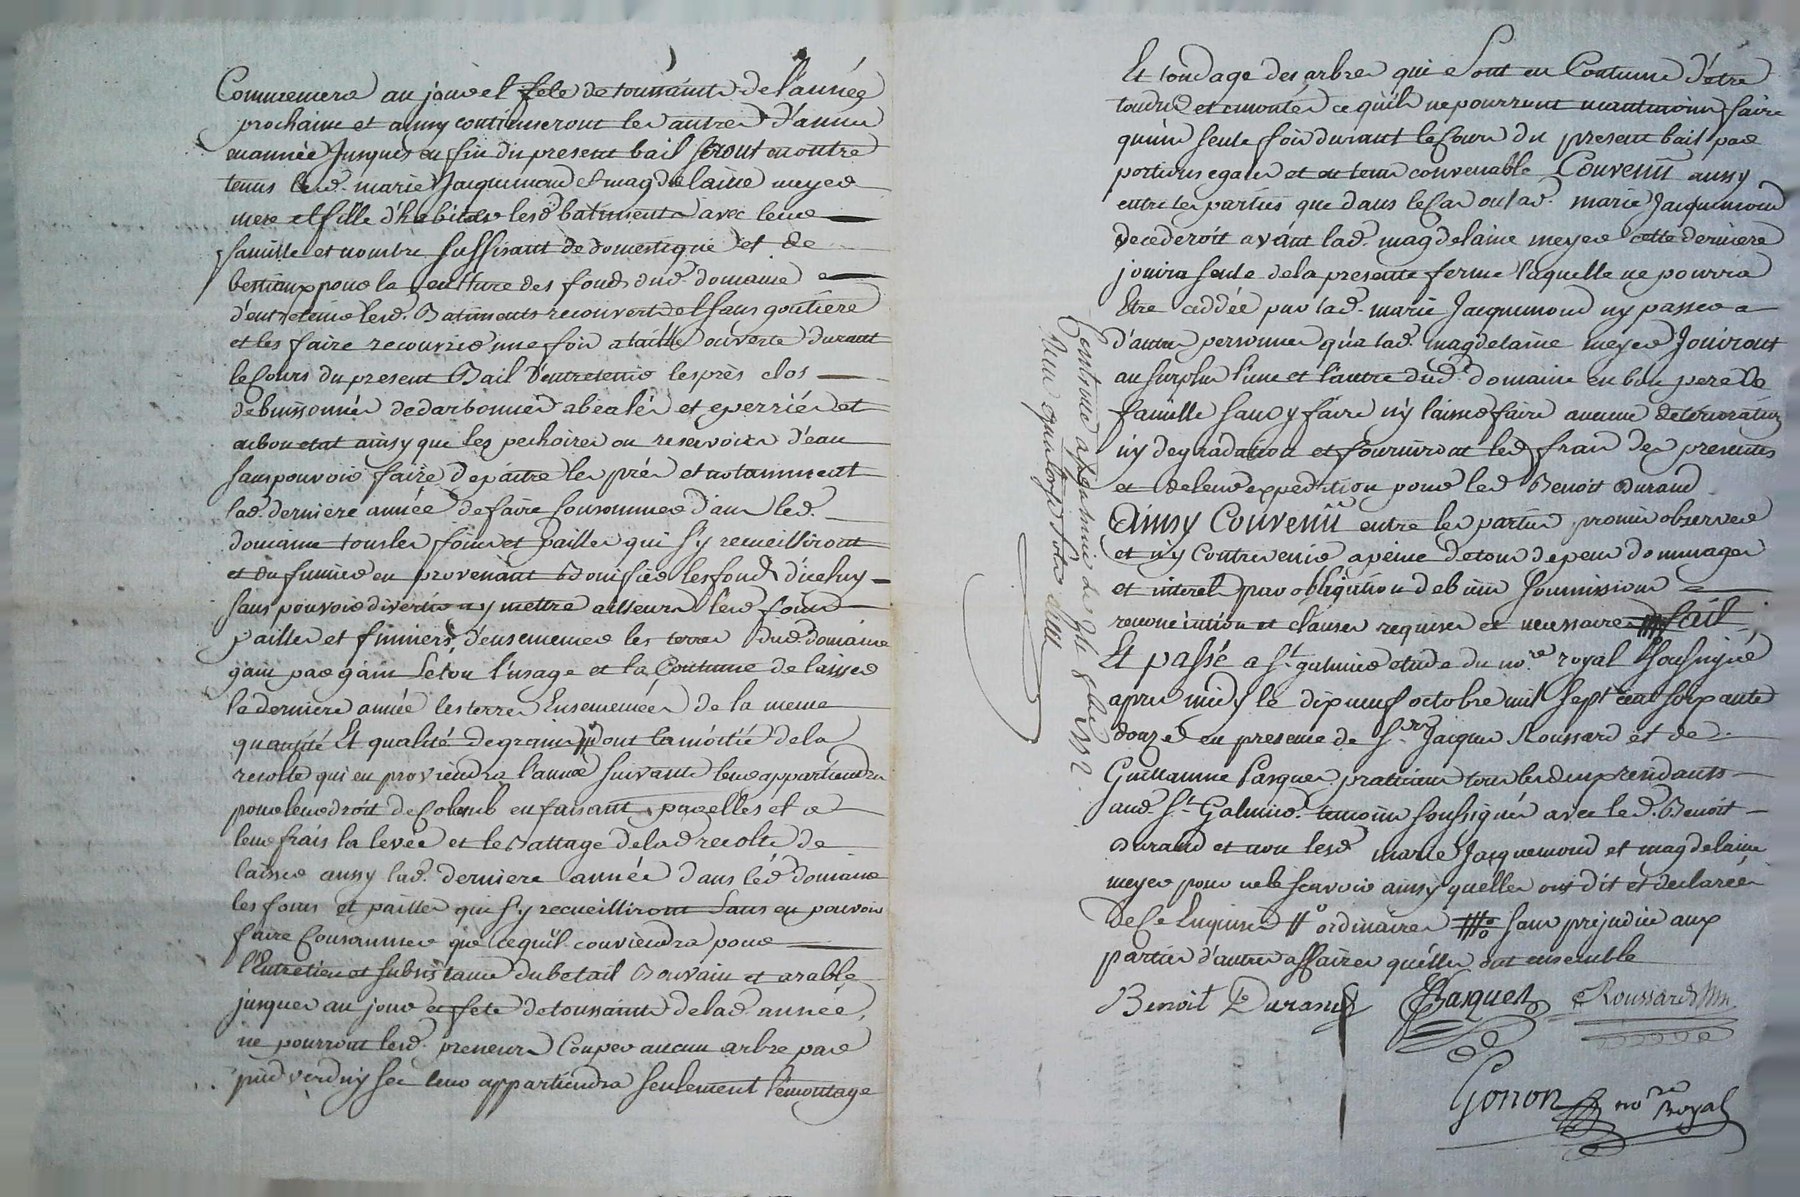 Commencera au jour et fete de toussaints de l'année
prochaine et ainsy continueront les autres d'année
en année Jusques en fin du present bail seront en outre
tenus lesd. marie Jacquemond et magdelaine meyer
mere et fille d'habiter lesd batiments avec leur
famille et nombre suffisant de domestique et de
bestiaux pour la culture des fonds dud. domaine
d'entretenir lesd. Batiments recouverts et sans goutiere
et les faire recouvrir une fois a taille ouverte durant
le Cours du present Bail d'entretenir les près clos
debuissonnés dedarbonnés abealés et eperriés et
en bon etat ainsy que les pechoires ou reservoirs d'eau
sans pouvoir faire depaitre les prés et notamment
lad. derniere année de faire consommer dans led.
domaine tous les foins et pailles qui s'y recueilliront
et du fumier en provenant Bonifier les fonds d'iceluy
sans pouvoir divertir ny mettre ailleurs lesd foins
pailles et fumiers, d'ensemencer les terres dud domaine
gain par gain selon l'usage et la Coutume de laisser
la derniere année les terres Ensemencées de la meme
quantité Et qualité de grains dont la moitié de la
recolte qui en proviendra l'année suivante leur appartiendra
pour leur droit de Colons en faisant par elles et a
leur frais la levée et le Battage de lad recolte de
laisser aussy lad. derniere année dans led domaine
les foins et pailles qui s'y recueilliront sans en pouvoir
faire Consommer que ce qu'il conviendra pour
l'Entretien et subsistance du betail Bouvain et arable
jusques au jour et fete de toussaints de lad année,
ne pourront lesd. preneurs Couper aucun arbre par
pied verd ny sec leur appartiendra seulement l'emontage
Et tondage des arbres qui sont en Coutume d'etre
tondus et emontés ce qu'ils ne pourront neantmoins faire
qu'une seule fois durant le Cours du present bail par
portions egales et en tems convenable Convenu aussy
entre les parties que dans le Cas ou lad. marie Jacquemond
decederoit avant lad. magdelaine meyer cette derniere
jouira seule de la presente ferme laquelle ne pourra
Etre ceddée par lad. marie Jacquemond ny passer a
d'autres personnes qu'a lad. magdelaine meyer Jouiront
au surplus l'une et l'autre dud. domaine en bon pere de
famille sans y faire ny laisser faire aucune deterioration
ny degradation et fourniront les frais des presentes
et de leur expedition pour led Benoit Durand
Ainsy Convenu entre les parties promis observer
et n'y Contrevenir a peine de tous depens dommages
et interets par obligation de biens soumissions
renonciation et clauses requises et necessaires fait
Et passé a St. galmier etude du nore. royal soussigné
apres midy le dix neuf octobre mil sept cent soixante
douze en presence de Sr. Jacques Roussard et de
Guillaume Pasquet praticiens tous les deux residants
aud St. Galmier temoins soussignés avec led. Benoit
Durand et non lesd marie Jacquemond et magdelaine
meyer pour ne le scavoir ainsy quelles ont dit et declarées
de Ce Enquises ordinaires sans prejudice aux
parties d'autres affaires qu'elles ont ensemble
Benoit Durand Pasquet Roussard
Gonon nore Royal
Controllé a St galmier le